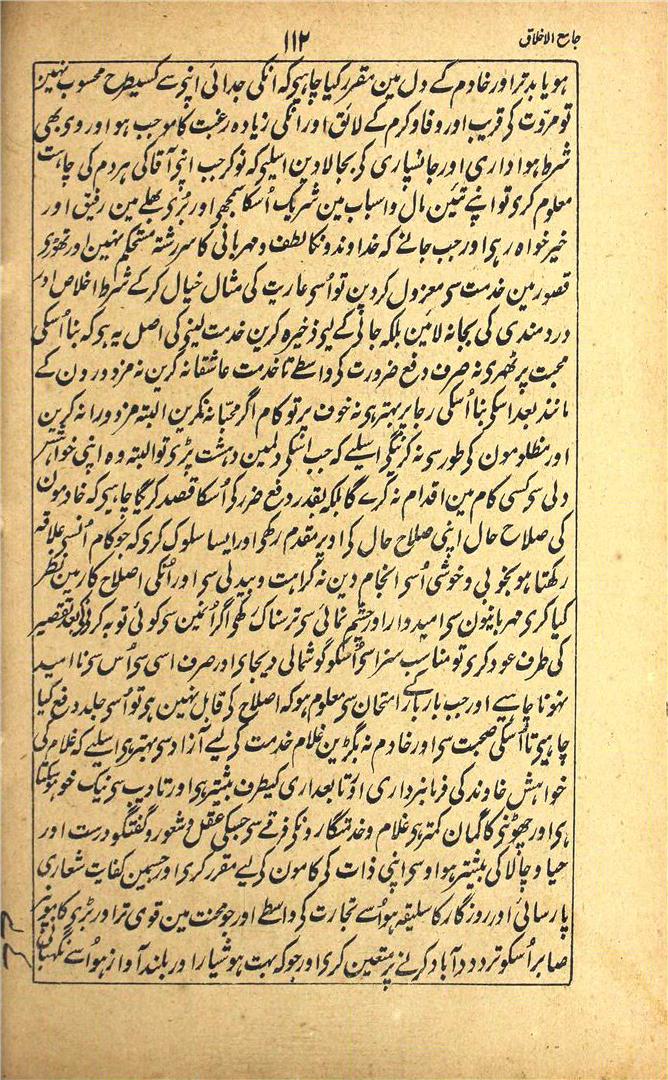 جامع الاخلاق
۱۱۲
ہو یا بدتر اور خادم کے دل مین مقرر کیا چاہیے کہ انکی جدائی اپنی سے کسیطرح محسوب نہین
تو مروّت کی قریب اور وفا و کرم کے لائق اور انکی زیادہ رغبت کا موجب ہو اور وی بھی
شرط ہوا داری اور جانسپاری کی بجا لادین اسلیے کہ نوکر جب اپنی آقا کی ہر دم کی چاہت
معلوم کری تو اپنے تئین مال و اسباب مین شریک اُسکا سمجھے اور بُری بھلے مین رفیق اور
خیرخواہ رہی اور جب جانے کہ خداوند ونکا لطف و مہربانی کا سررشتہ مستحکم نہین اور تھوڑی
قصور مین خدمت سی معزول کردین تو اُسی عاریت کی مثال خیال کرکے شرط اخلاص اور
دردمندی کی بجا نہ لامین بلکہ جانی کے لیی ذخیرہ کرین خدمت لینی کی اصل یہ ہی کہ بنا اُسکی
محبت پر ٹھہری نہ صرف دفع ضرورت کی واسطے تا خدمت عاشقانہ کرین نہ مزدورون کے
مانند بعد اسکی بنا اُسکی رجا پر بہتر ہی نہ خوف پر تو کام اگر محبّانہ نکرین البتہ مزدورانہ کرین
اور مظلومون کی طور سی نہ کرینگی اسلیے کہ جب انکی دلمین دہشت پڑی تو البتہ وہ اپنی خواہش
دلی سی کسی کام مین اقدام نہ کرے گا بلکہ بقدر دفع ضرر کی اُسکا قصد کریگا چاہیی کہ خادمون
کی صلاح حال اپنی صلاح حال کی اوپر مقدم رکھی اور ایسا سلوک کری کہ جو کام اُنسی علاقہ
رکھتا ہو بخوبی و خوشی اُسی انجام دین نہ کراہت و بیدلی سی اور اُنکی اصلاح کار مین نظر
کیا کری مہربانیون سی امیدوار اور چشم نمائی سی ترسناک رکھی اگر اُنمین سی کوئی توبہ کرنی کی بعد تقصیر
کی طرف عود کری تو مناسب سزا سی اُسکو گوشمالی دیجاے اور صرف اسی سی اُس سی نا امید
نہونا چاہیے اور جب بار بار کی امتحان سی معلوم ہو کہ اصلاح کی قابل نہین ہی تو اُسی جلد دفع کیا
چاہیی تا اُسکی صحبت سی اور خادم نہ بگڑین غلام خدمت کی لیی آزاد سی بہتر ہی اسلیے کہ غلام کی
خواہش خاوند کی فرمانبرداری اور تابعداری کیطرف بیشتر ہی اور تادیب سی نیک خو ہوسکتا
ہی اور چھوٹنی کا گمان کمتر ہی غلام و خدمتگار ونکی فرقے سی جسکی عقل و شعور و گفتگو درست اور
حیا و چالاکی بیشتر ہو اوسی اپنی ذات کی کامون کی لیی مقرر کری اور جسمین کفایت شعاری
پارسائی اور روزگار کا سلیقہ ہو اُسے تجارت کی واسطے اور جو محنت مین قوی تر اور بڑی کامونپر
صابر اُسکو تردد و آباد کرنے پر متعین کری اور جو کہ بہت ہوشیار اور بلند آواز ہو اُسے نگہبانی